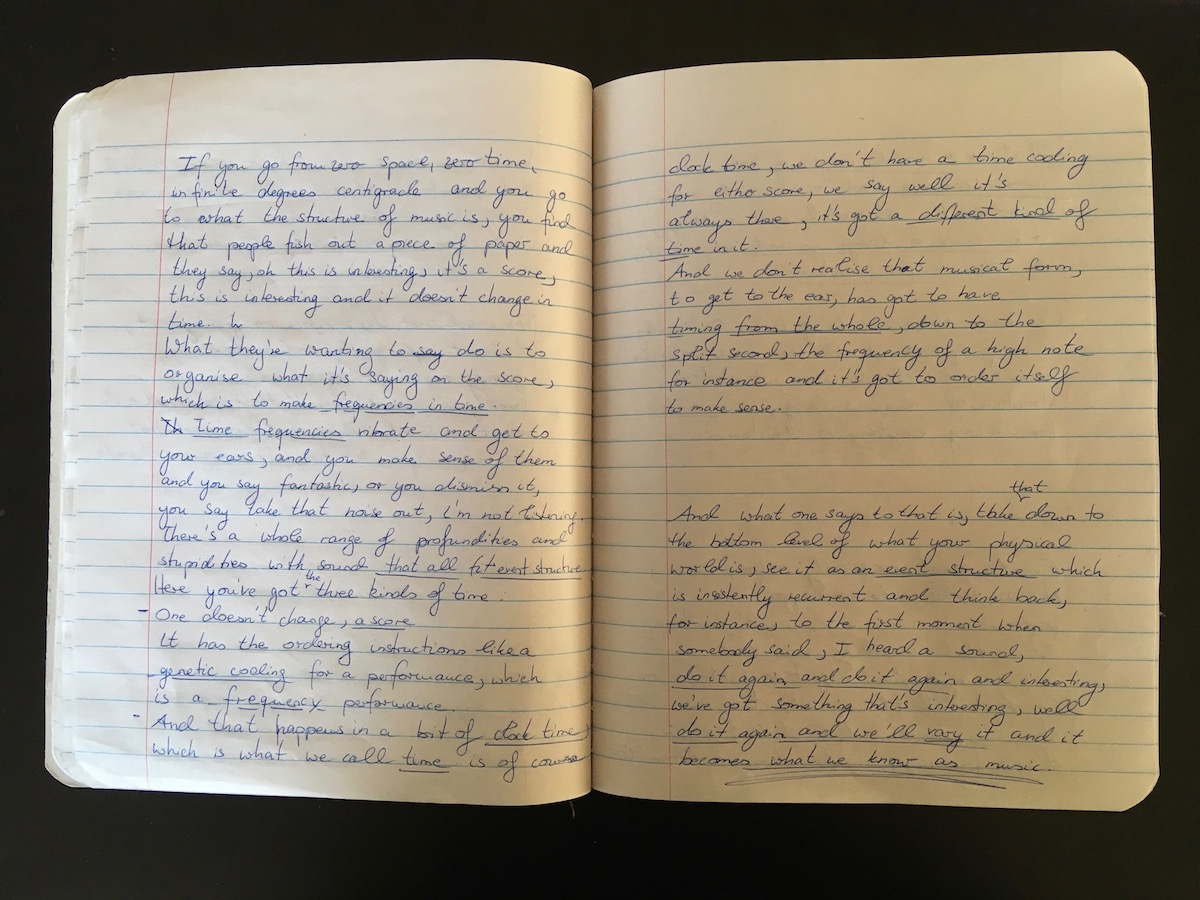 If you go from zero space, zero time,
infinite degrees centigrade and you go
to what the structure of music is, you find
that people fish out a piece of paper and
they say, oh this is interesting, it's a score,
this is interesting and it doesn't change in
time.
What they're wanting to say do is to
organise what it's saying on the score,
which is to make frequencies in time.
Th Time frequencies vibrate and get to
your ears, and you make sense of them
and you say fantastic, or you dismiss it,
you say take that noise out, i'm not listening.
There's a whole range of profundities and
stupidities with sound that all fit event structure
Here you've got the three kinds of time.
- One doesn't change, a score
It has the ordering instructions like a
genetic coding for a performance, which
is a frequency performance.
- And that happens in a bit of clock time,
which is what we call time is of course
clock time, we don't have a time coding
for either score, we say well it's
always there, it's got a different kind of
time in it.
And we don't realise that musical form,
to get to the ear, has got to have
timing from the whole, down to the
split second, the frequency of a high note
for instance and it's got to order itself
to make sense.
that
And what one says to that is, take down to
the bottom level of what your physical
world is, see it as an event structure which
is insistently recurrent and think back,
for instance, to the first moment when
somebody said, I heard a sound,
do it again and do it again and interesting,
we've got something that's interesting, we'll
do it again and we'll vary it and it
becomes what we know as music.